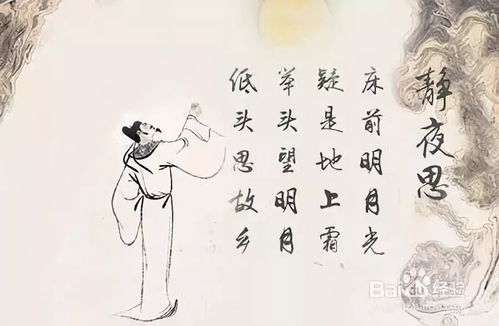 静夜思
床前明月光
疑是地上霜
举头望明月
低头思故乡
Baidu经验